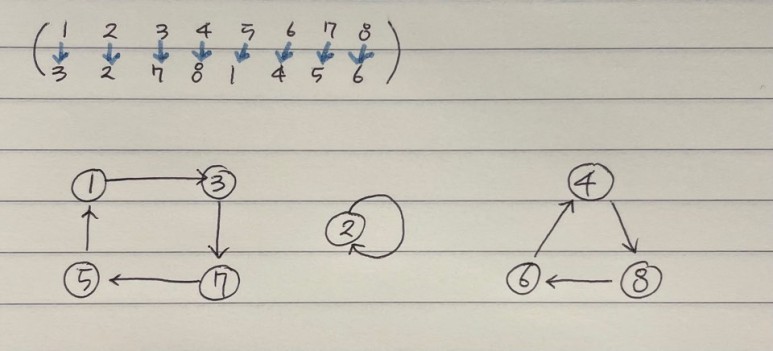 ( 1 2 3 4 5 6 7 8 )
3 2 7 8 1 4 5 6
1 3 2 4
5 7 6 8